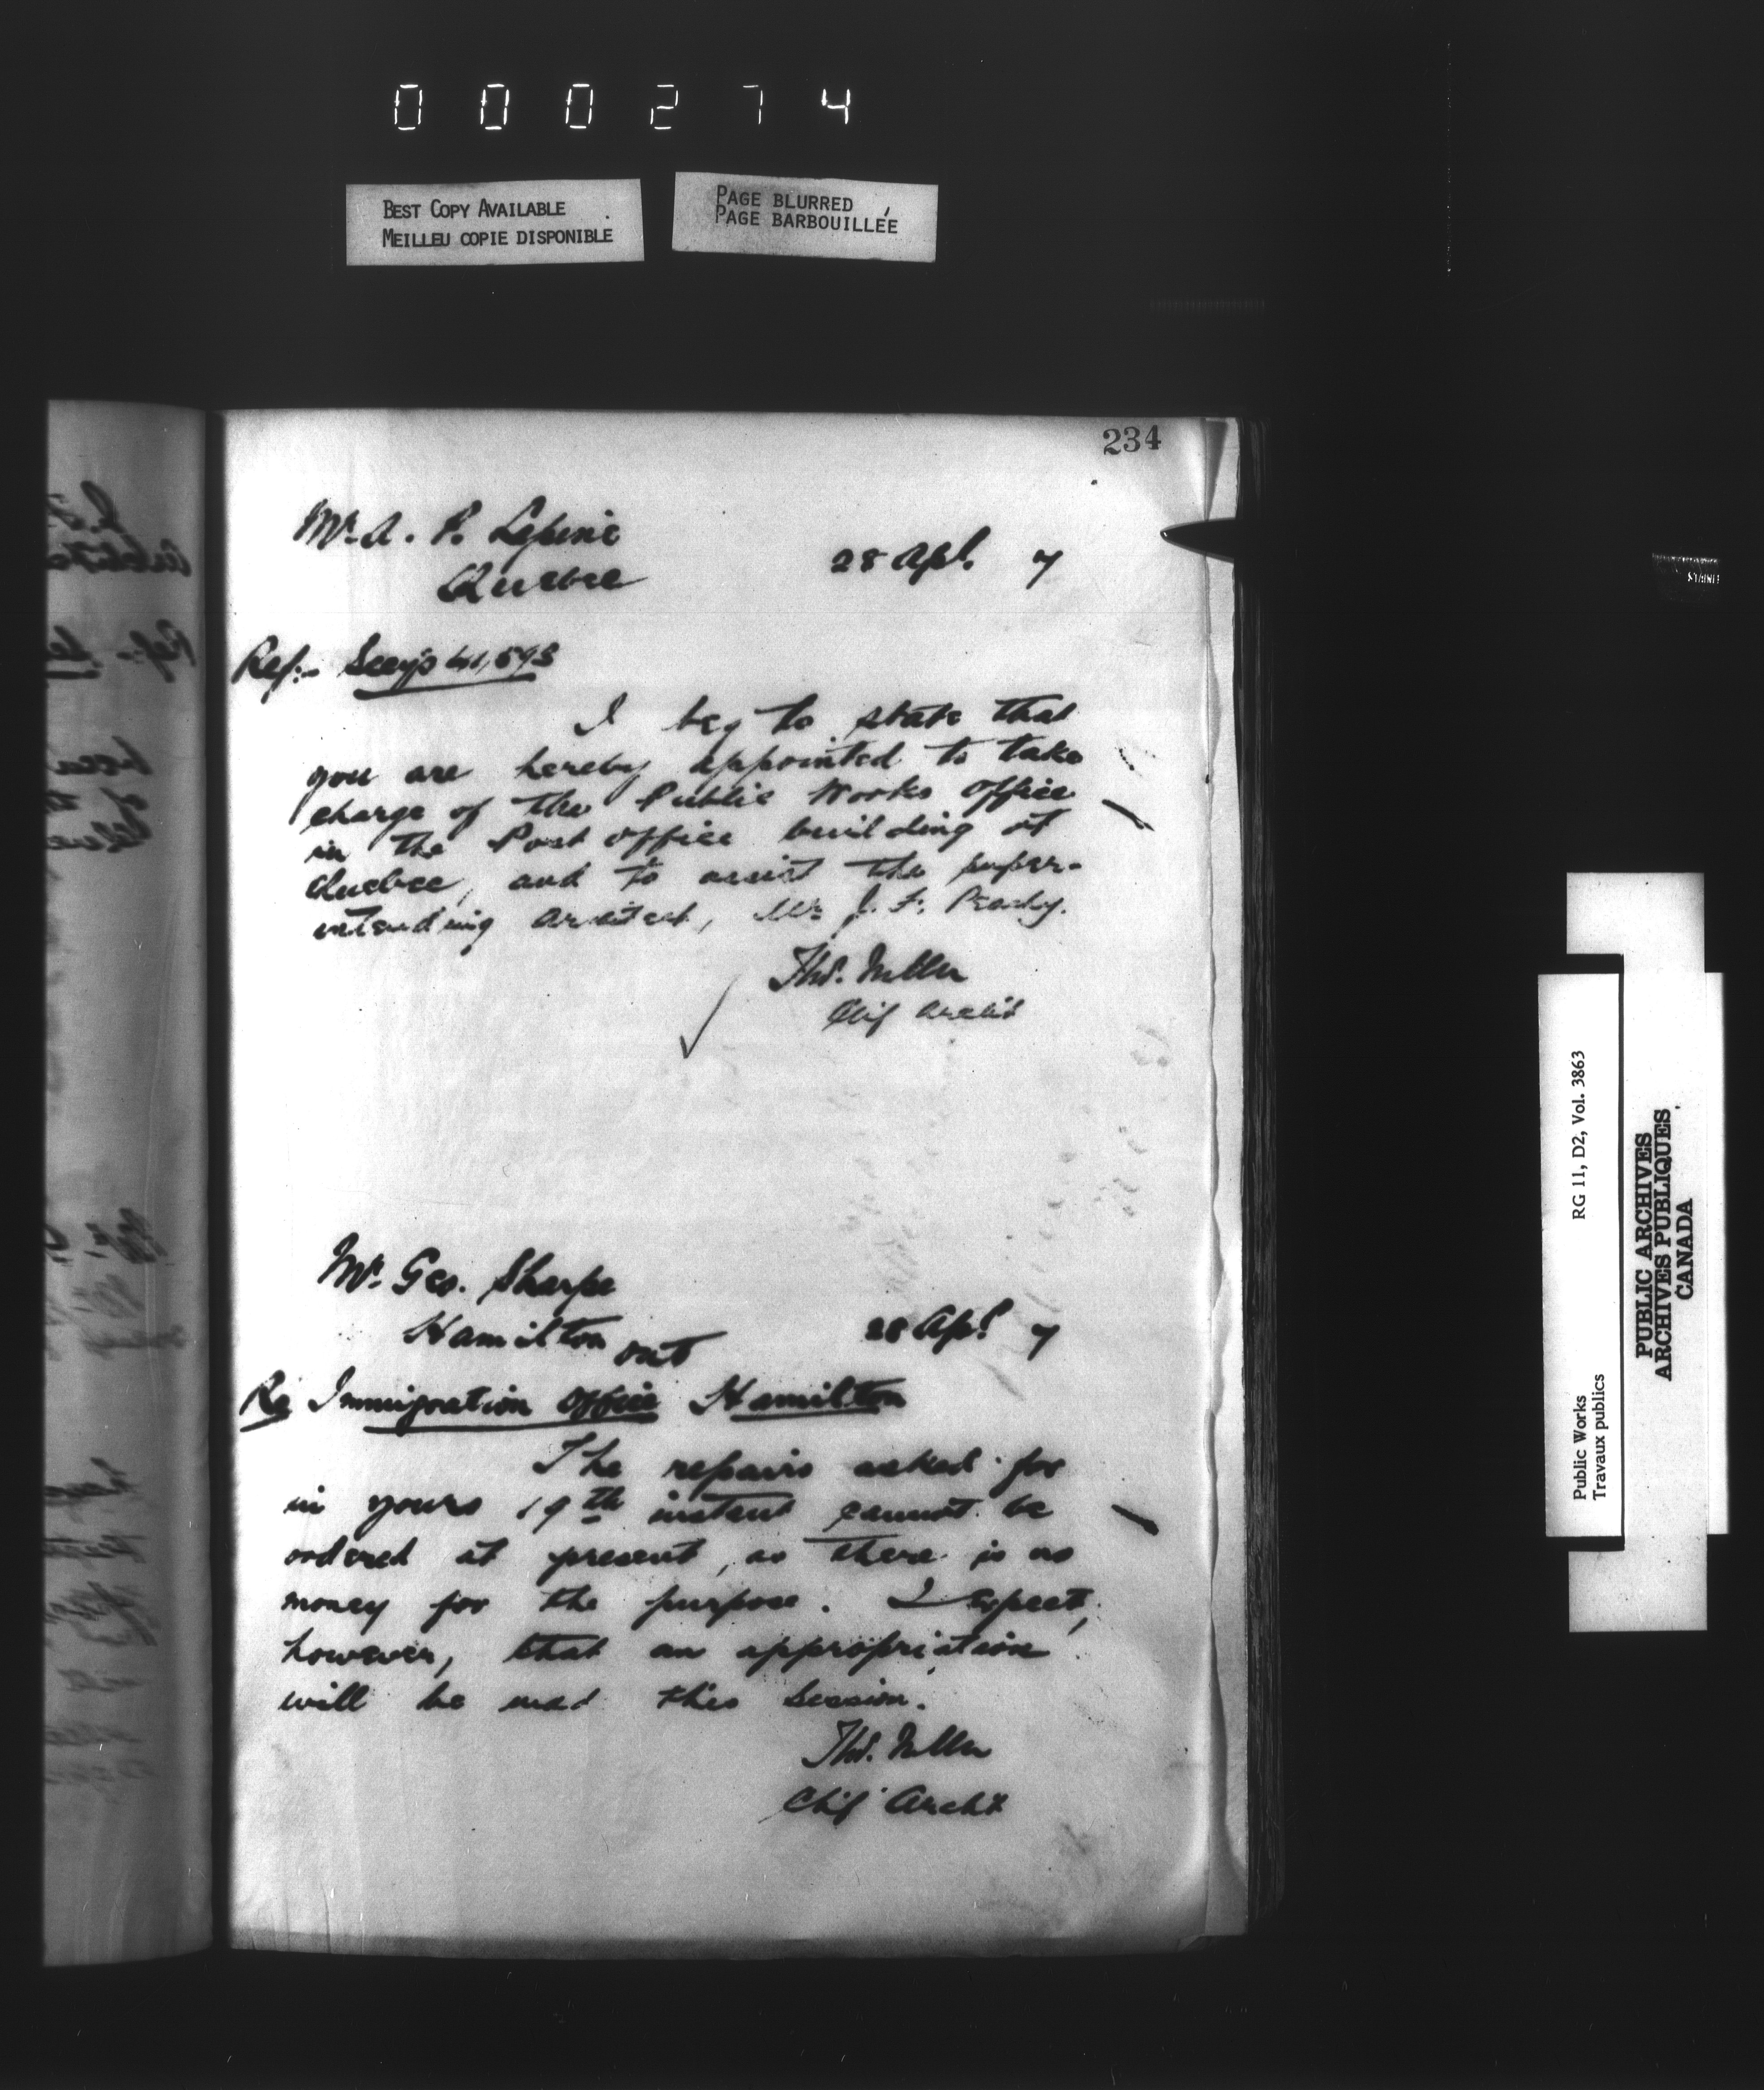 000274
BEST COPY AVAILABLE
MEILLEU COPIE DISPONIBLE
PAGE BLURRED
PAGE BARBOUILLÉE
234
Mr. A. P. Lepine
Quebec
28 Apl. 7
Ref:- Secy's 41,593
I beg to state that
you are hereby appointed to take
charge of the Public Works Office
in the Post Office building at
Quebec, and to assist the super-
intending architect, Mr. J. F. Peachy.
Thos. Fuller
Chief Archt
Mr. Geo. Sharpe
Hamilton Ont
28 Apl. 7
Re Immigration Office Hamilton
The repairs asked for
in yours 19th instant cannot be
ordered at present, as there is no
money for the purpose. I expect,
however, that an appropriation
will be mad this session.
Thos. Fuller
Chief Archt
Public Works
Travaux publics
RG 11, D2, Vol. 3863
PUBLIC ARCHIVES
ARCHIVES PUBLIQUES
CANADA